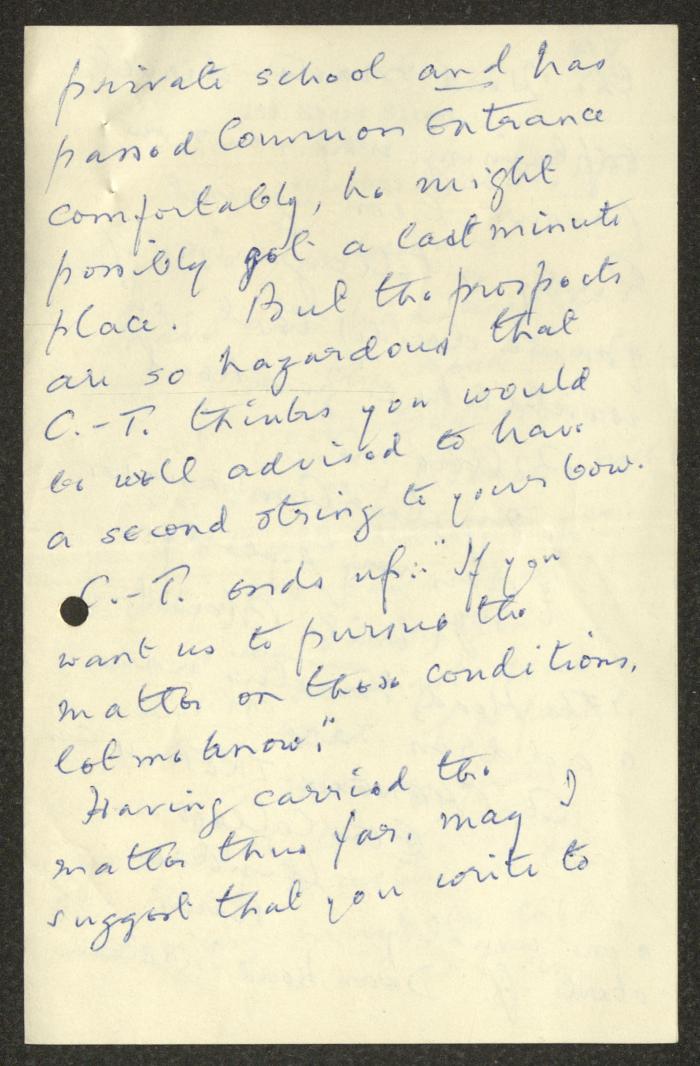 private school and has
passed Common Entrance
comfortably, he might
possibly get a last minute
place. But the prospects
are so hazardous that
C.-T. thinks you would
be well advised to have
a second string to your bow.
C.-T. ends up: "If you
want us to pursue the
matter on these conditions,
let me know."
Having carried the
matter thus far, may I
suggest that you write to